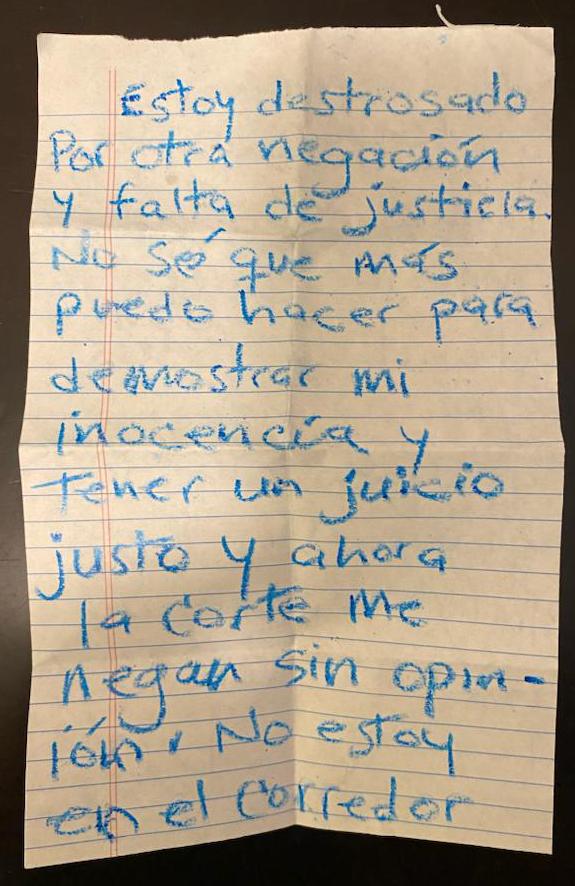 Estoy destrosado
Por otra negación
y falta de justicia.
No sé que más
puedo hacer para
demostrar mi
inocencía y
tener un juicio
justo y ahora
la corte me
negan sin opin-
ión. No estoy
en el corredor